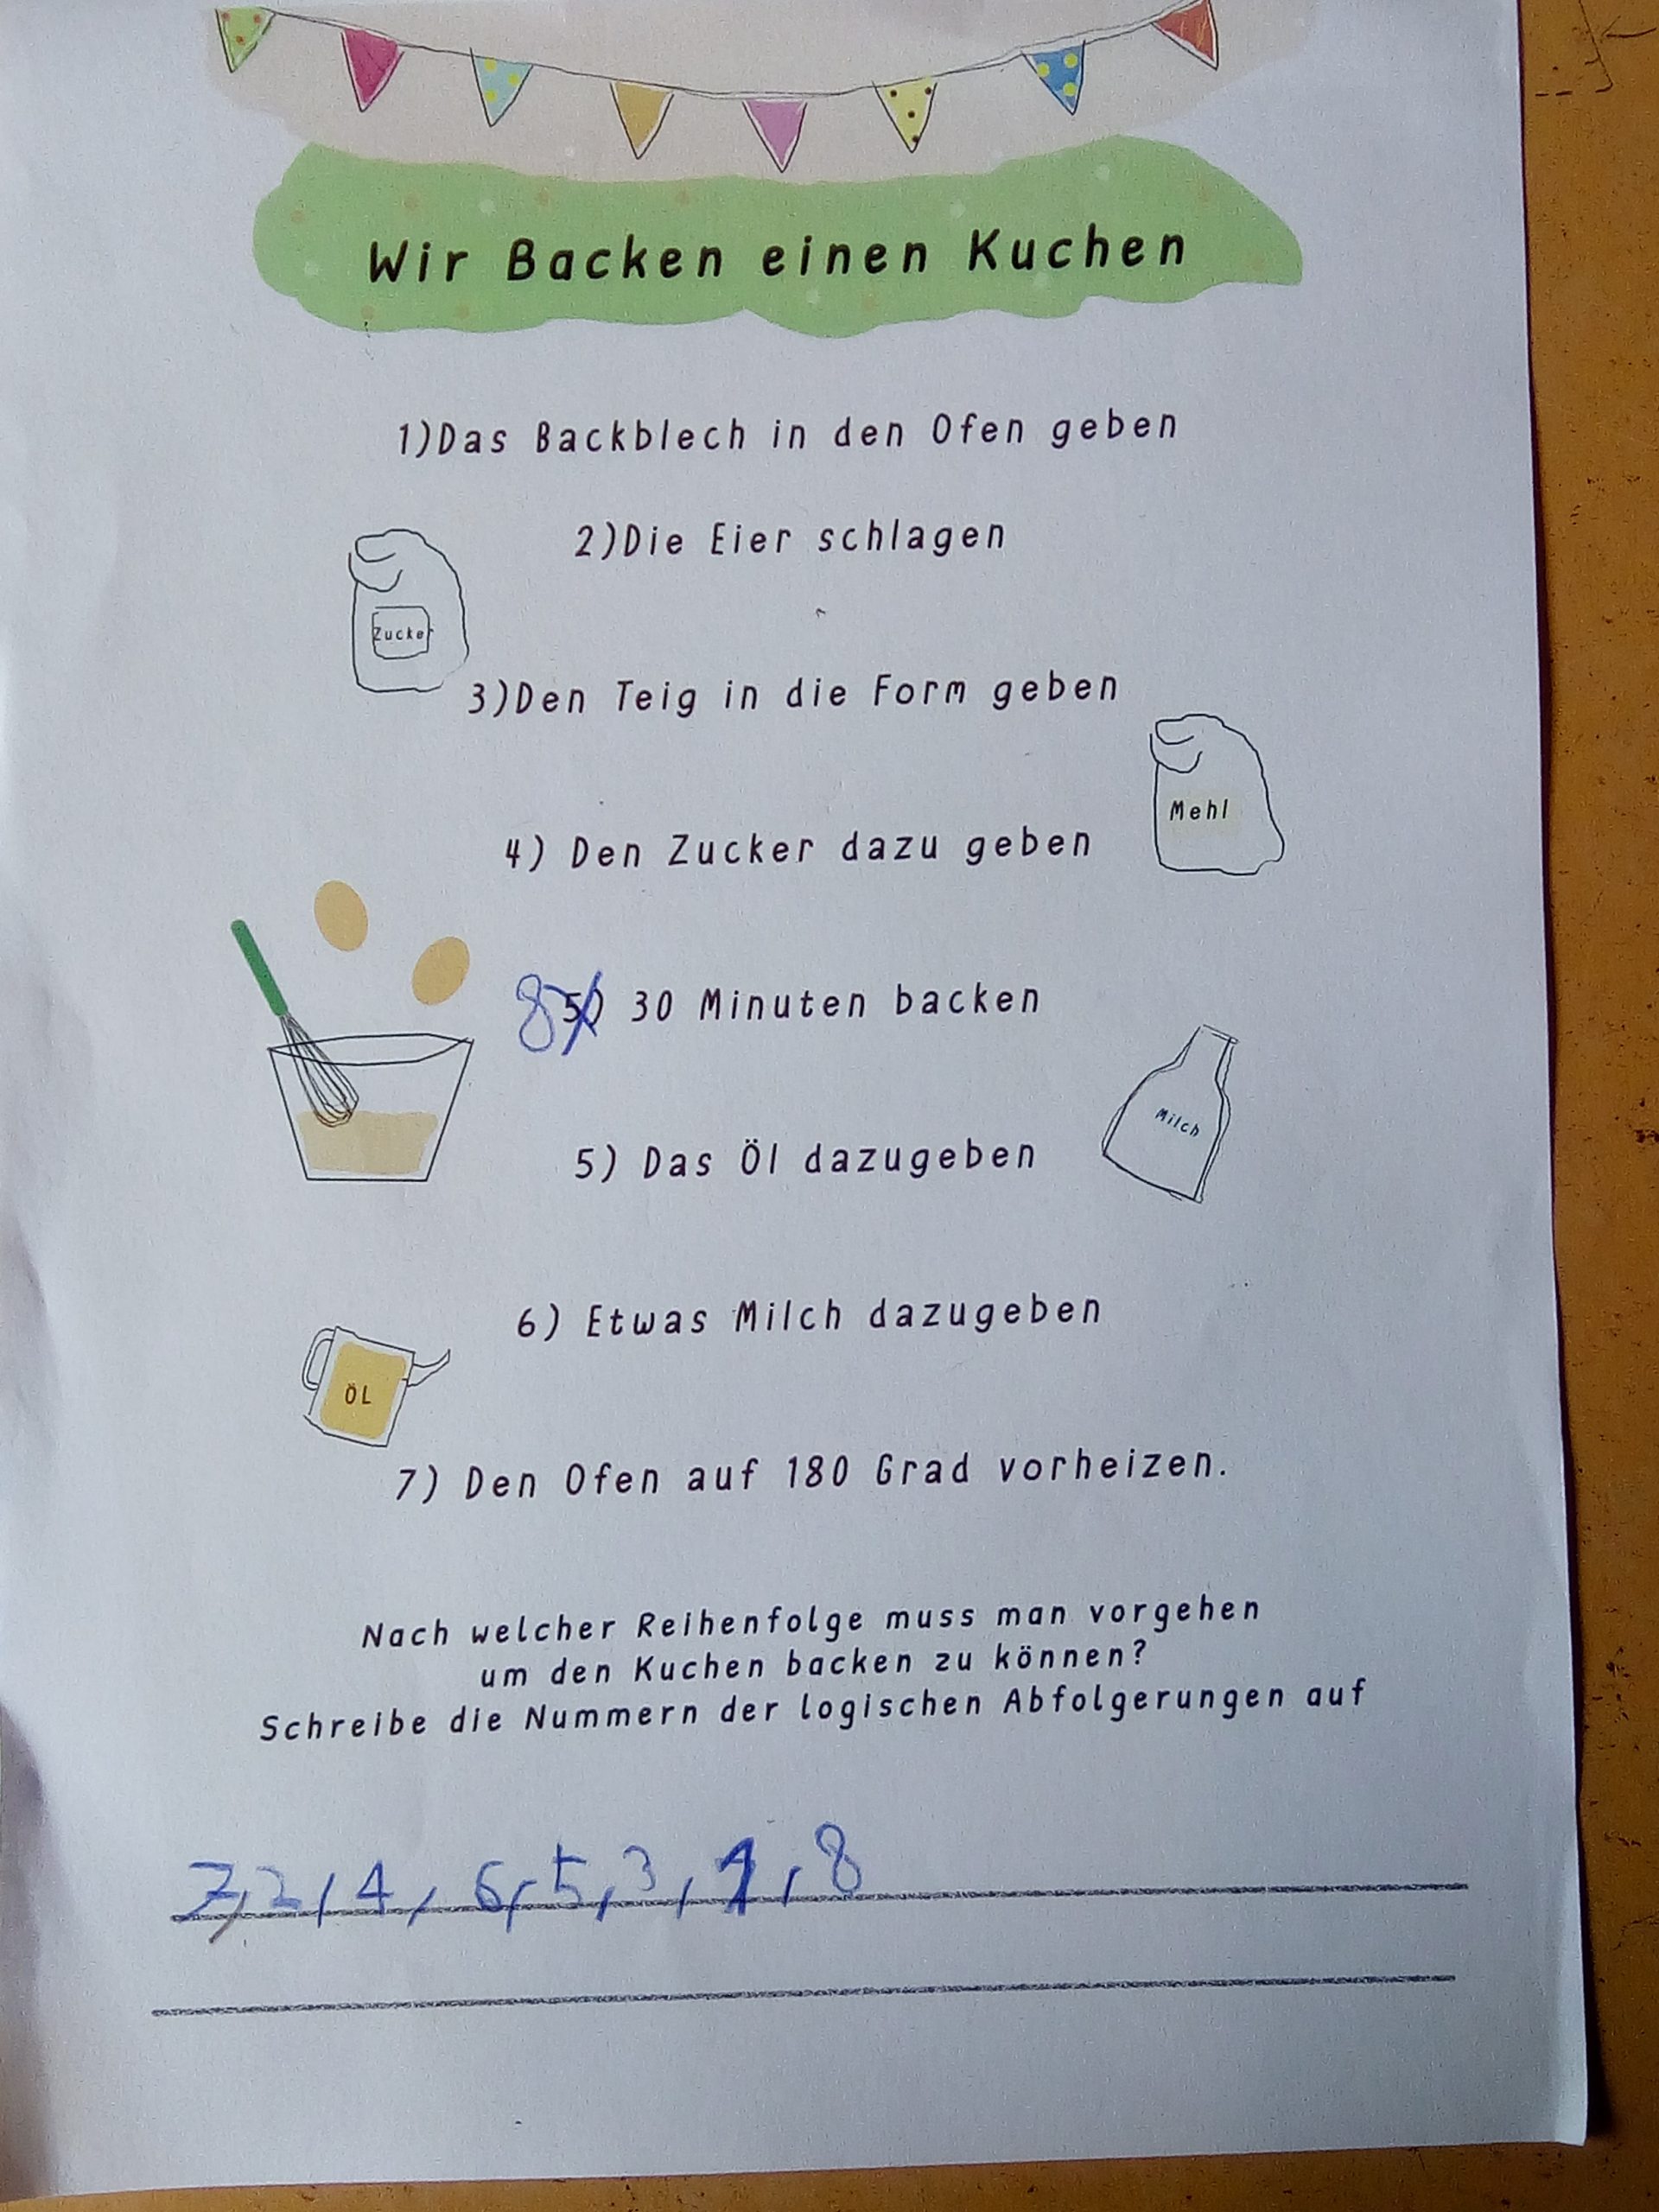 Wir Backen einen Kuchen
1)Das Backblech in den Ofen geben
2)Die Eier schlagen
Zucker
3)Den Teig in die Form geben
Mehl
4) Den Zucker dazu geben
8 5) 30 Minuten backen
Milch
5) Das Öl dazugeben
6) Etwas Milch dazugeben
ÖL
7) Den Ofen auf 180 Grad vorheizen.
Nach welcher Reihenfolge muss man vorgehen
um den Kuchen backen zu können?
Schreibe die Nummern der logischen Abfolgerungen auf
7, 2, 4, 6, 5, 3, 1, 8